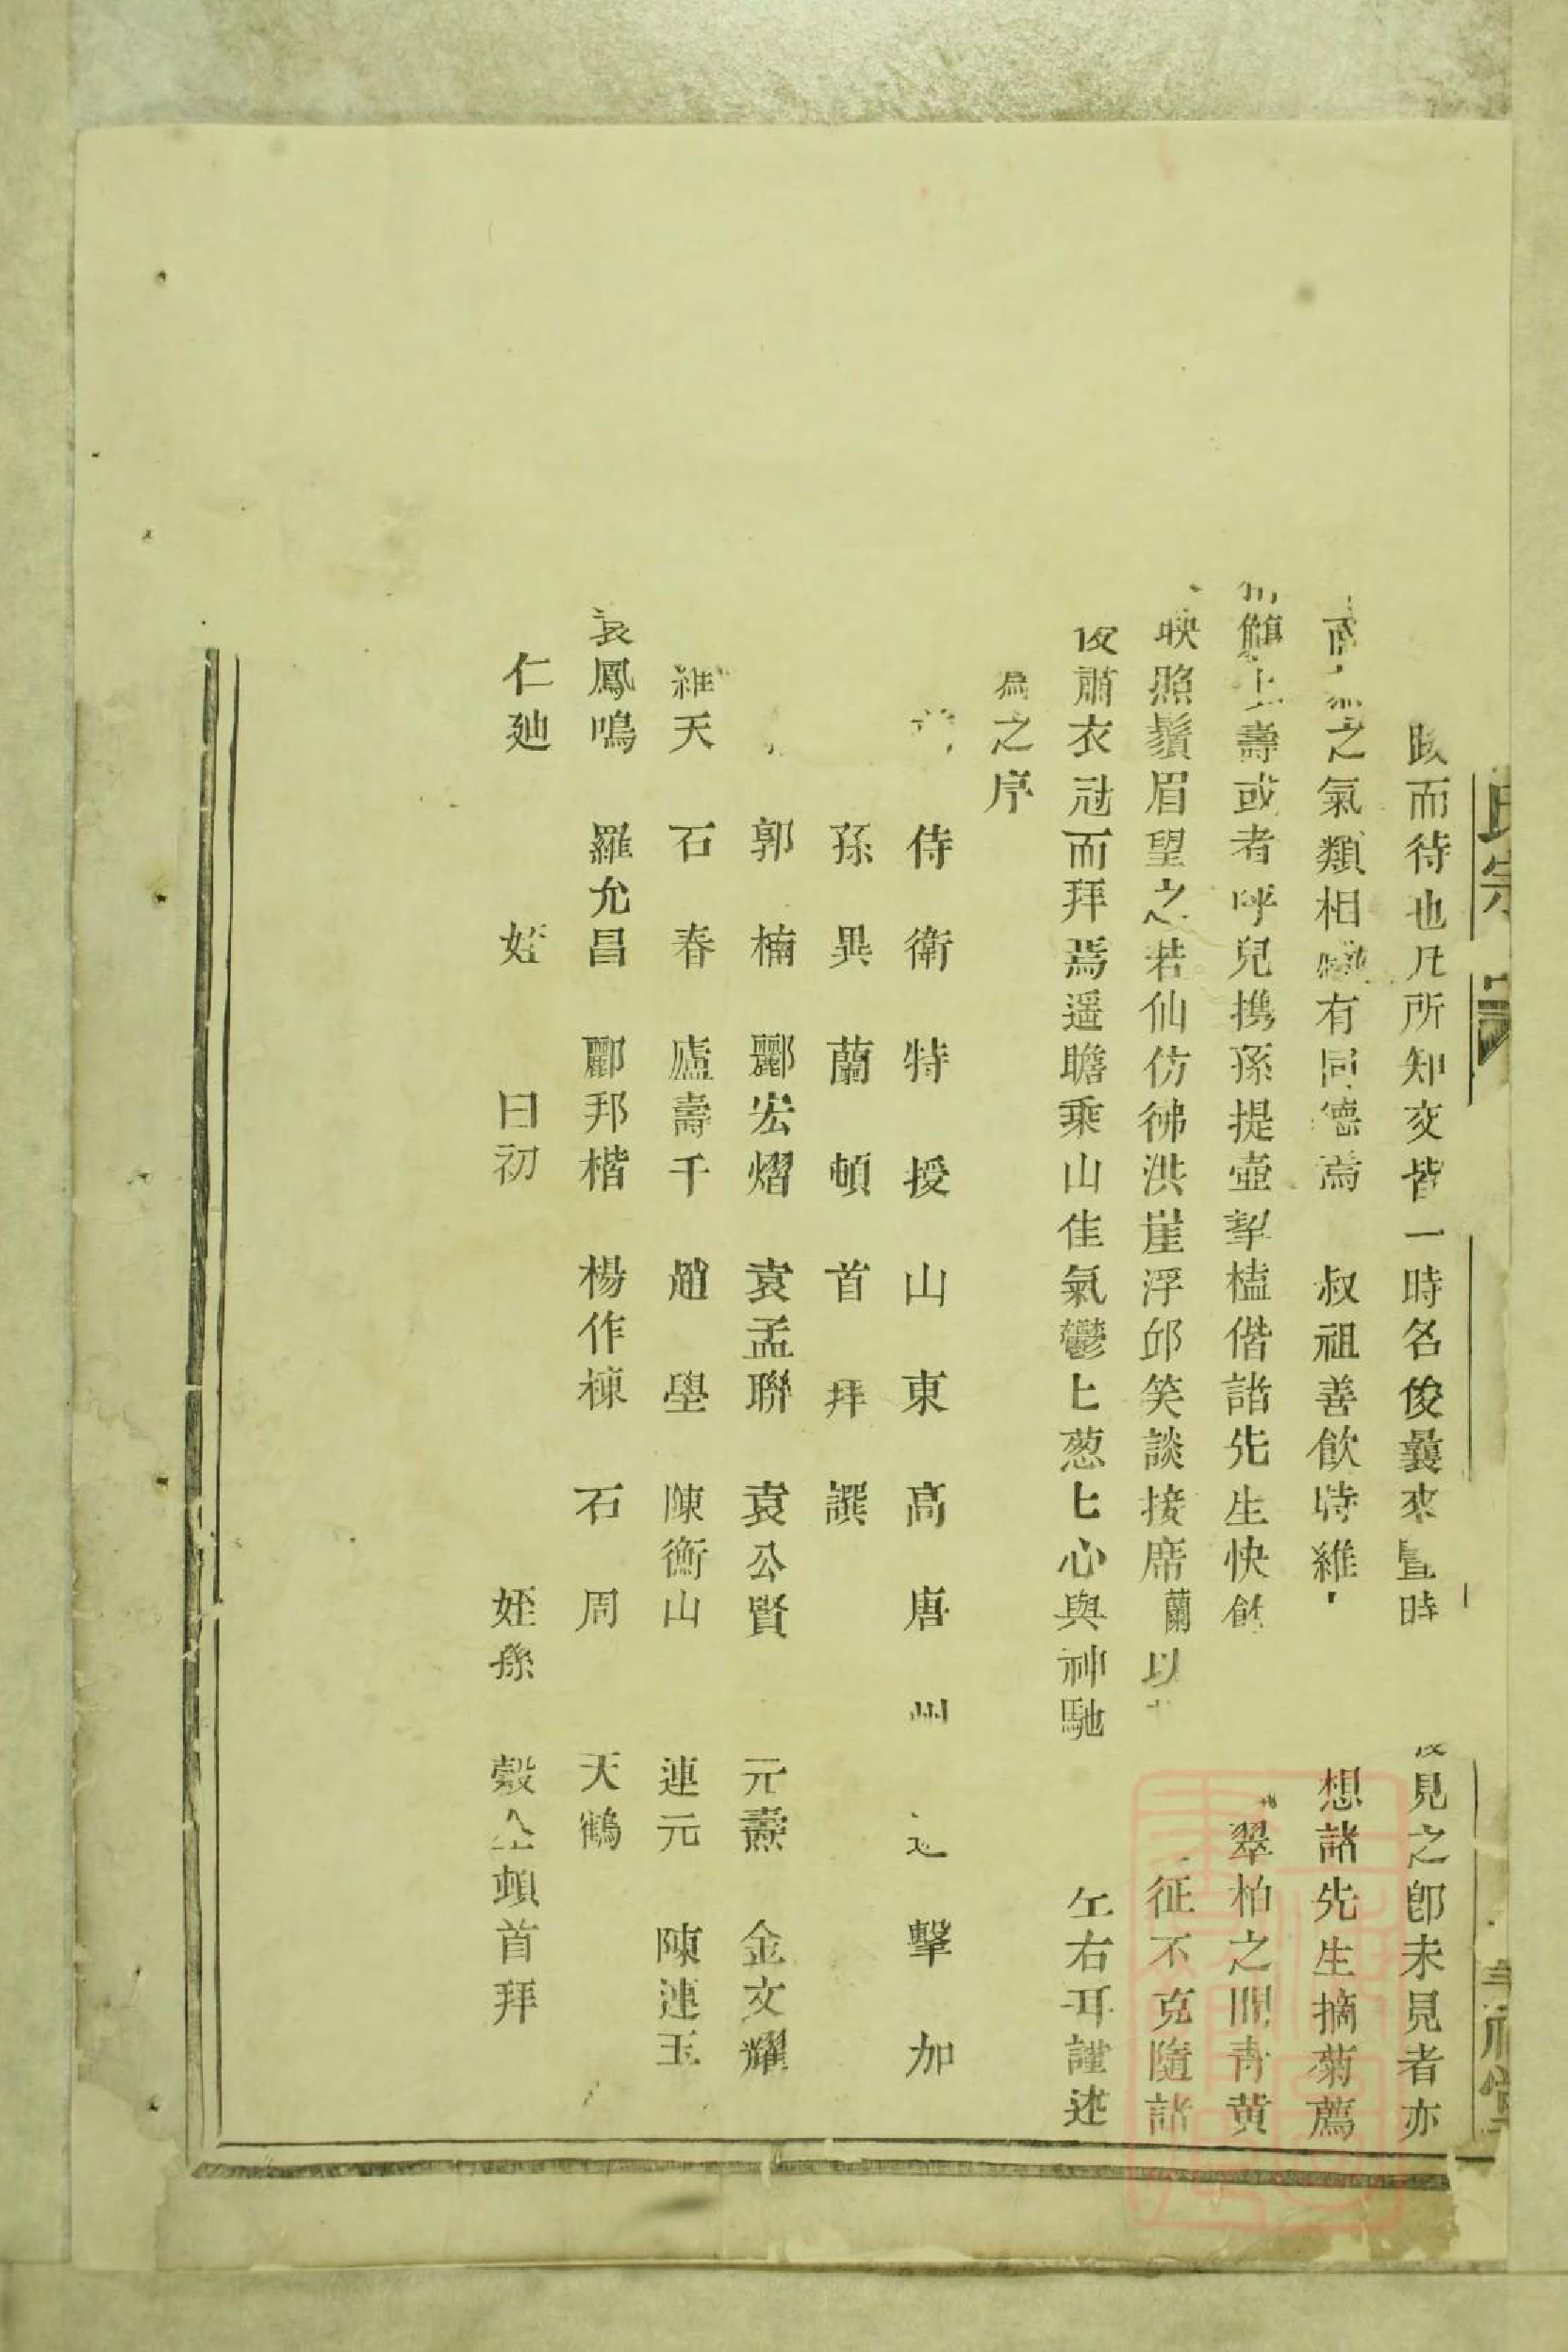 氏宗
祠堂
而待也凡所知交皆一時名俊曩來暨時見之卽未見者亦
之氣類相有同德焉 叔祖善飲時維想諸先生摘菊薦
上壽或者呼兒携孫提壺挈榼偕諸先生快飲翠柏之間青黄
映照鬚眉望之若仙仿彿洪崖浮邱笑談接席蘭以征不克隨諸
肅衣冠而拜焉遥瞻乘山佳氣鬱匕葱匕心與神馳左右耳謹述
爲之序
侍衛特授山東高唐州擊加
孫異蘭頓首拜譔
郭楠 酈宏熠 袁孟聯 袁公賢 元燾 金文耀
維天 石春 盧壽千 趙壆 陳衡山 連元 陳連玉
袁鳳鳴 羅允昌 酈邦楷 楊作棟 石周 天鶴
仁廸 姪 日初 姪孫 穀全頓首拜